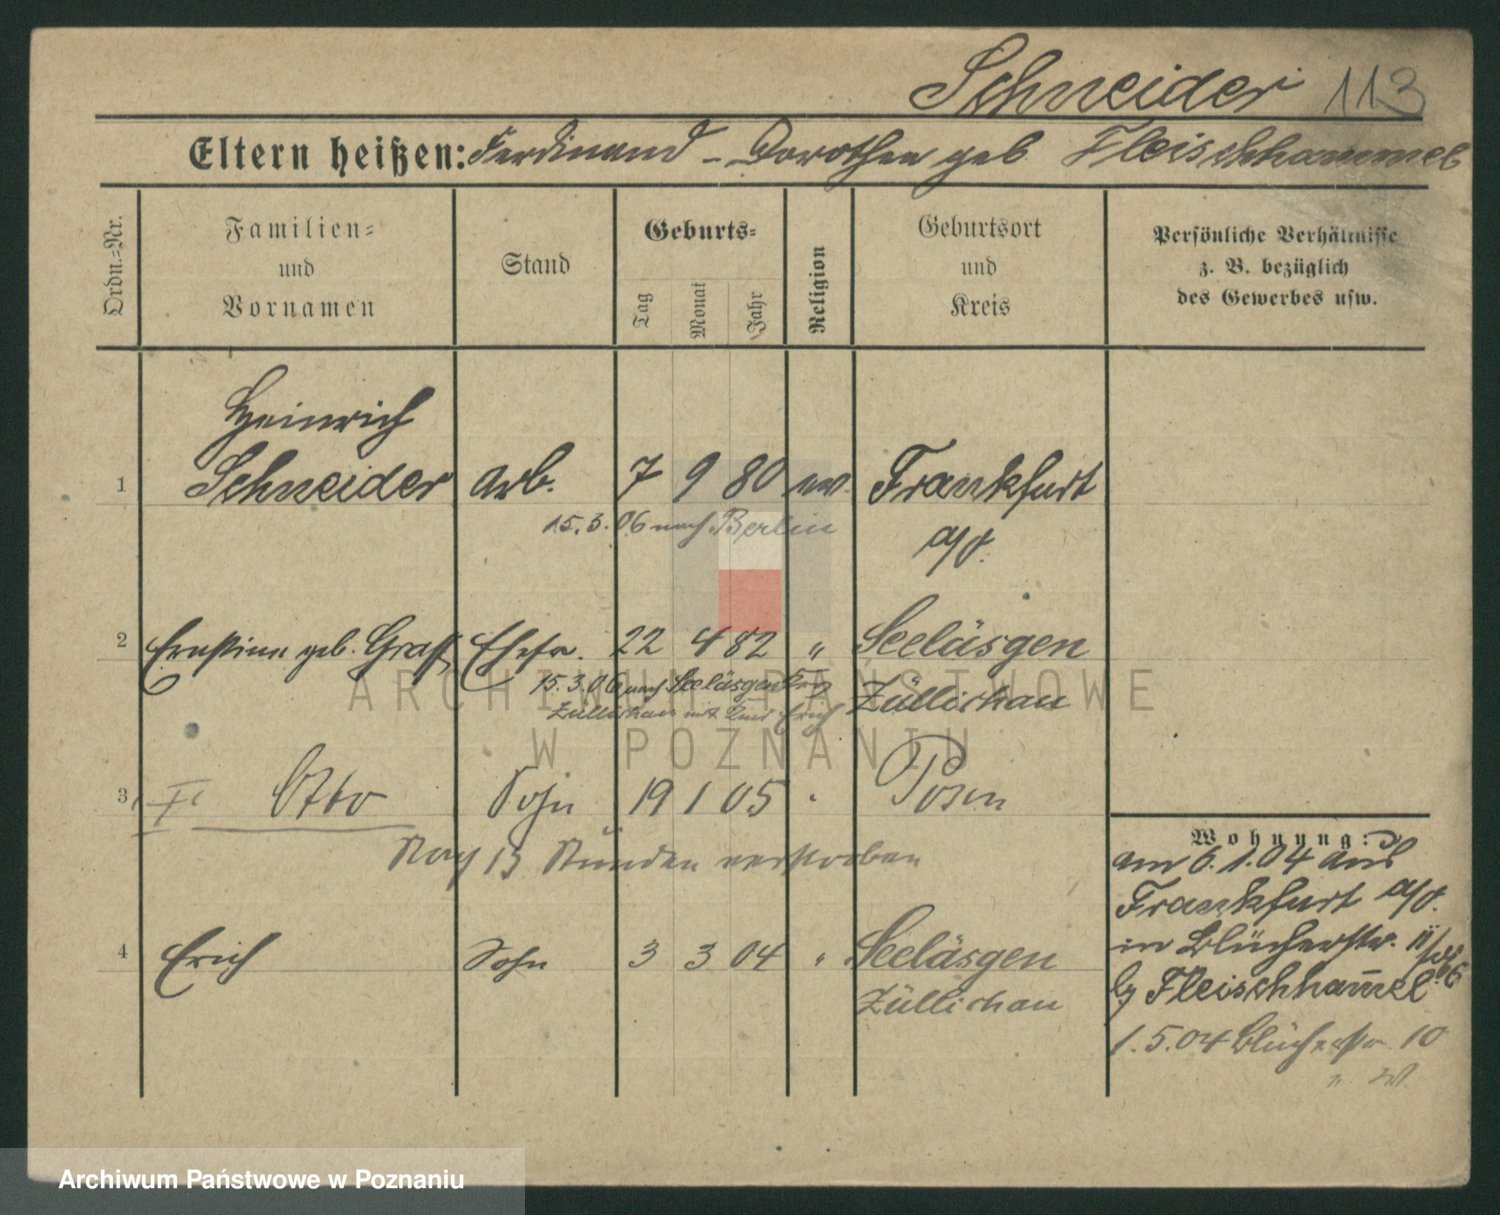 Schneider 113
Eltern heißen: Ferdinand - Dorothea geb Fleischhammel
Ordn.-Nr.
Familien- und Vornamen
Stand
Geburts-
Tag Monat Jahr
Religion
Geburtsort und Kreis
Persönliche Verhältnisse z. B. bezüglich des Gewerbes usw.
Heinrich
1 Schneider Arb. 7 9 80 ev. Frankfurt
15.3.06 nach Berlin
a/O.
2 Ernstine geb. Graff Ehefr. 22 4 82 " Seeläsgen
15.3.06 nach Seeläsgen Krs
Züllichau
Züllichau mit Kind Erich
3 Otto Sohn 19 1 05 " Posen
Nach 13 Stunden verstorben
Wohnung:
am 6.1.04 aus
Frankfurt a/O.
4 Erich Sohn 3 3 04 " Seeläsgen
in Blücherstr.
Züllichau
b/ Fleischham̅el
1.5.04 Blücherstr. 10
ARCHIWUM PAŃSTWOWE
W POZNANIU
Archiwum Państwowe w Poznaniu